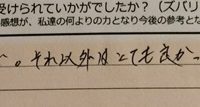 受けられていかがでしたか？（ズバリ
感想が、私達の何よりの力となり今後の参考とな
。それ以外はとても良かっ